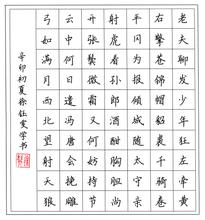 老夫聊发少年狂左牵黄
右擎苍锦帽貂裘千骑卷
平冈为报倾城随太守亲
射虎看孙郎酒酣胸胆尚
开张鬓微霜又何妨持节
云中何日遣冯唐会挽雕
弓如满月西北望射天狼
辛卯初夏徐钰学书